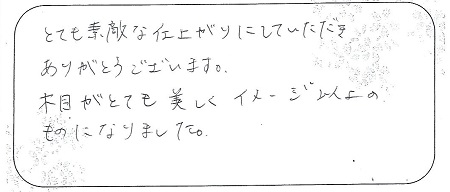 とても素敵な仕上がりにしていただき
ありがとうございます。
木目がとても美しくイメージ以上の
ものになりました。